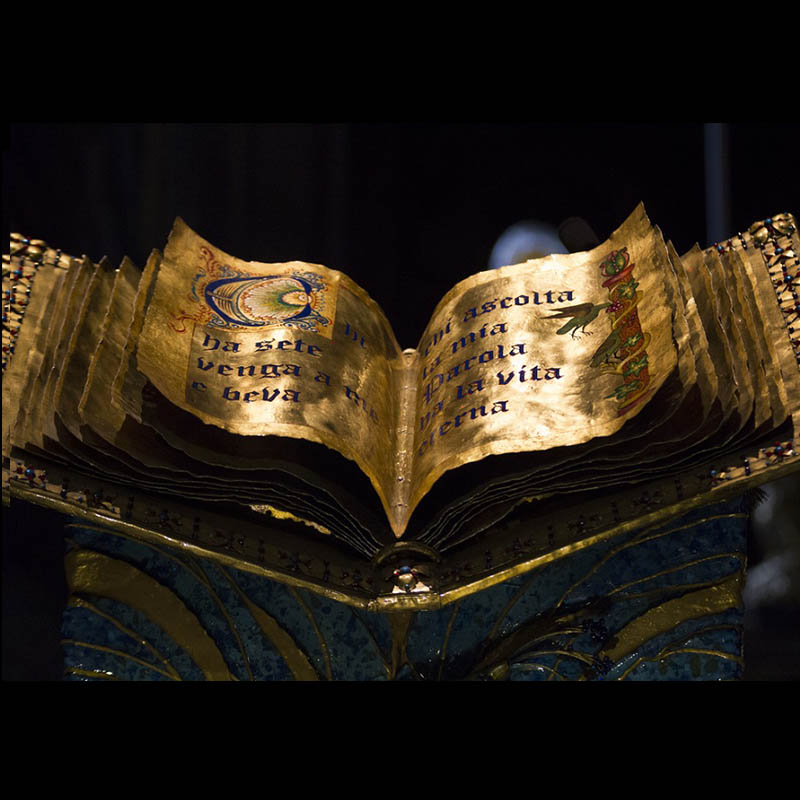 Chi
ha sete
venga a me
e beva
chi ascolta
la mia
Parola
ha la vita
eterna